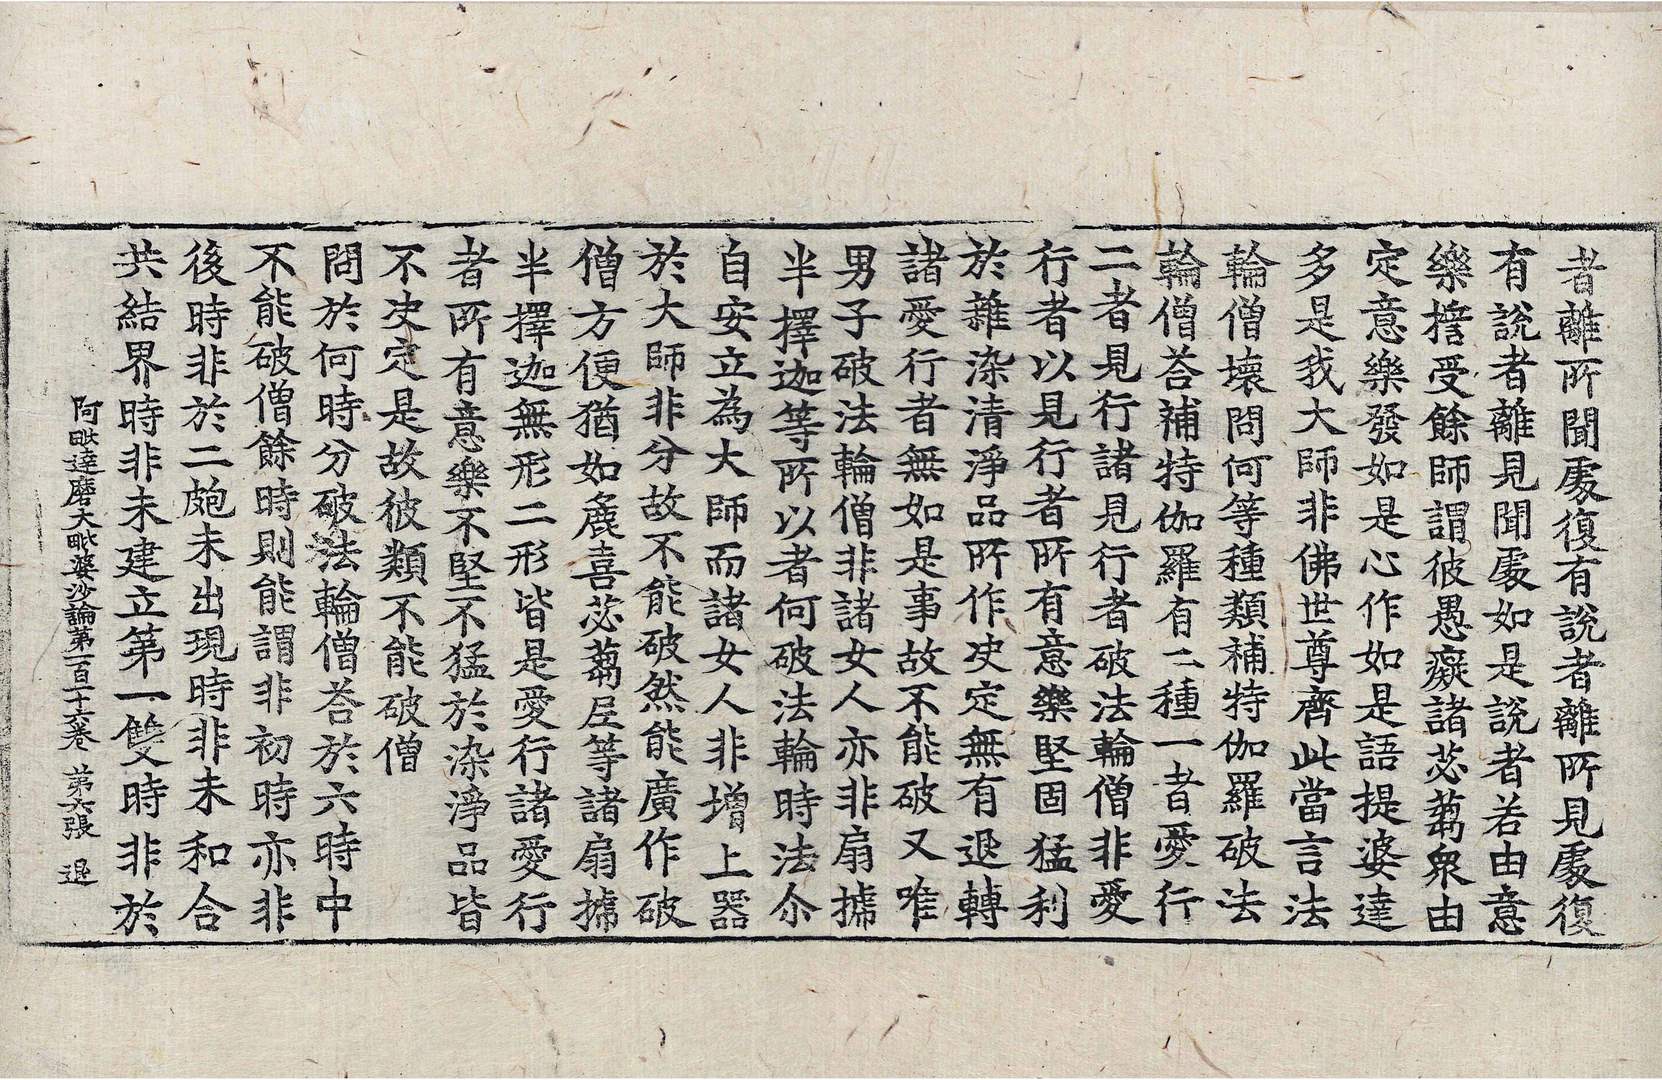 者離所聞處復有說者離所見處復
有說者離見聞處如是說者若由意
樂擔受餘師謂彼愚癡諸苾蒭衆由
定意樂發如是心作如是語提婆達
多是我大師非佛世尊齊此當言法
輪僧壞問何等種類補特伽羅破法
輪僧荅補特伽羅有二種一者愛行
二者見行諸見行者破法輪僧非愛
行者以見行者所有意樂堅固猛利
於雜染清淨品所作决定無有退轉
諸愛行者無如是事故不能破又唯
男子破法輪僧非諸女人亦非扇搋
半擇迦等所以者何破法輪時法尒
自安立為大師而諸女人非增上器
於大師非分故不能破然能廣作破
僧方便猶如麁喜苾蒭尼等諸扇搋
半擇迦無形二形皆是愛行諸愛行
者所有意樂不堅不猛於染淨品皆
不决定是故彼類不能破僧
問於何時分破法輪僧荅於六時中
不能破僧餘時則能謂非初時亦非
後時非於二皰未出現時非未和合
共結界時非未建立第一雙時非於
阿毗達磨大毗婆沙論第一百十六卷 第六張 退